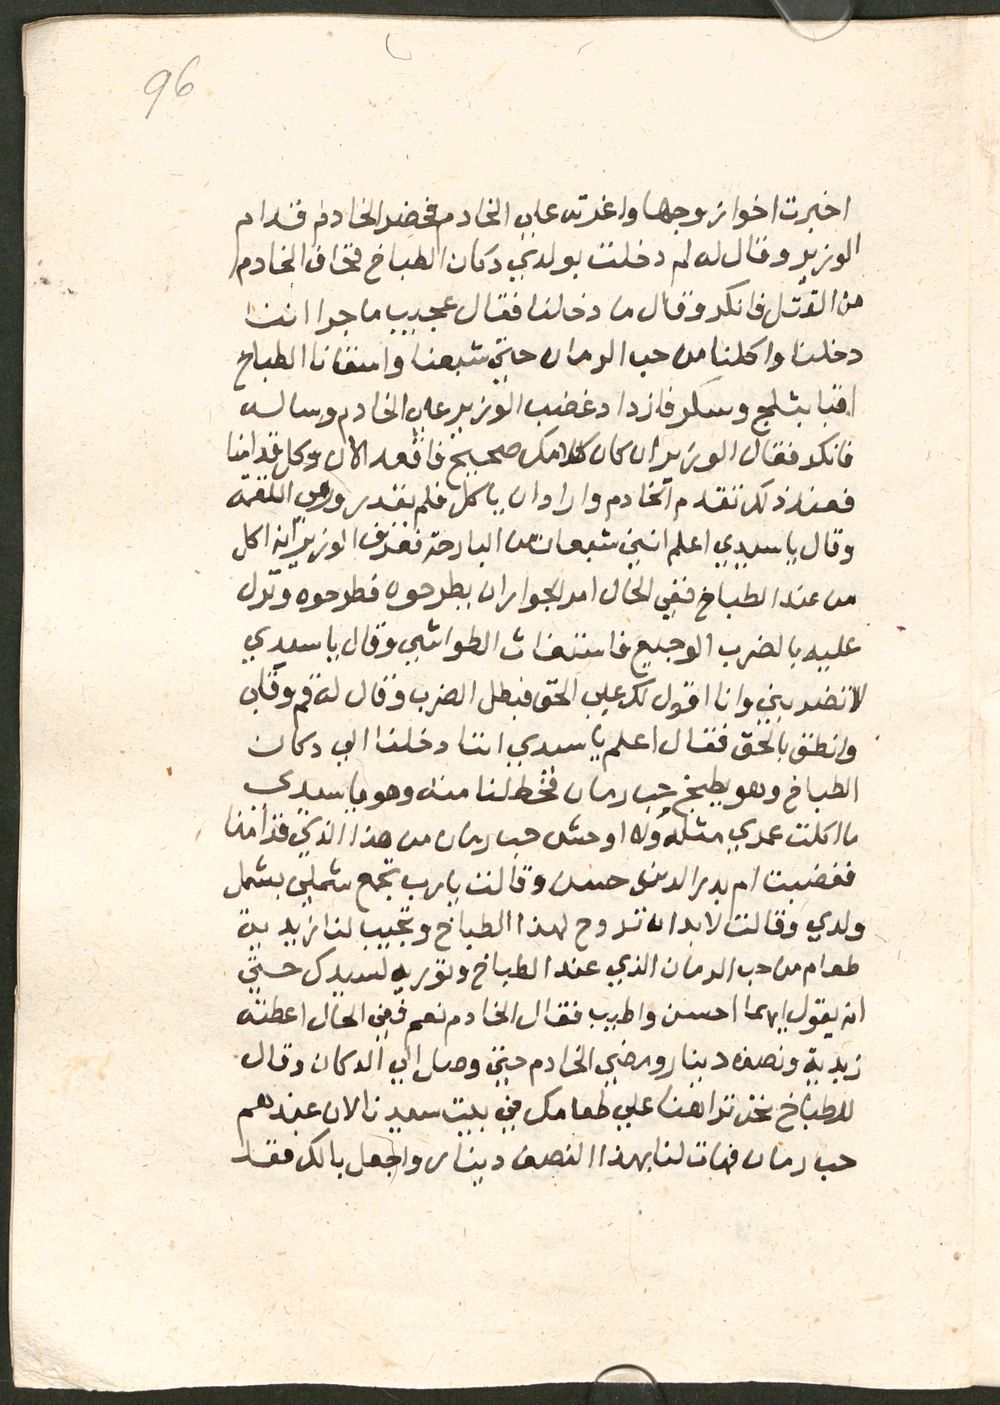 96
اخبرت اخواز وجها واغرته علي الخادم فحضر الخادم قدام
الوزير وقال له لم دخلت بولدي دكان الطباخ فخاف الخادم
من القتل فانكر وقال ما دخلنا فقال عجيب ما جرا انتا
دخلنا واكلنا من حب الرمان حتي شبعنا واسقانا الطباخ
اقبا بثلج وسكر فازداد غضب الوزير علي الخادم وساله
فانكر فقال الوزير ان كان كلامك صحيح فاقعد الان وكل قدامنا
فعند ذلك تقدم الخادم واراد ان ياكل فلم يقدر ورمي اللقمة
وقال يا سيدي اعلم انني شبعان من البارحة فعرف الوزير انه اكل
من عند الطباخ ففي الحال امر الجوار ان يطرحوه فطرحوه ونزل
عليه بالضرب الوجيع فاستغاث الطواشي وقال يا سيدي
لا تضربني وانا اقول لك علي الحق فبطل الضرب وقال له قم وقال
وانطق بالحق فقال اعلم يا سيدي اننا دخلنا الي دكان
الطباخ وهو يطبخ حب رمان فحط لنا منه وهو يا سيدي
ما اكلت عمري مثله ولا اوحش حب رمان من هذا الذي قدامنا
فغضبت ام بدر الدين حسن وقالت يا رب تجمع شملي بشمل
ولدي وقالت لا بد ان تروح لهذا الطباخ وتجيب لنا زبدية
طعام من حب الرمان الذي عند الطباخ وتوريه لسيدك حتي
انه يقول ايهما احسن واطيب فقال الخادم نعم ففي الحال اعطته
زبدية ونصف دينار ومضي الخادم حتي وصل الي الدكان وقال
للطباخ نحن تراهنا علي طعامك في بيت سيدنا لان عندهم
حب رمان فهات لنا بهذا النصف دينار واجعل بالك فقد